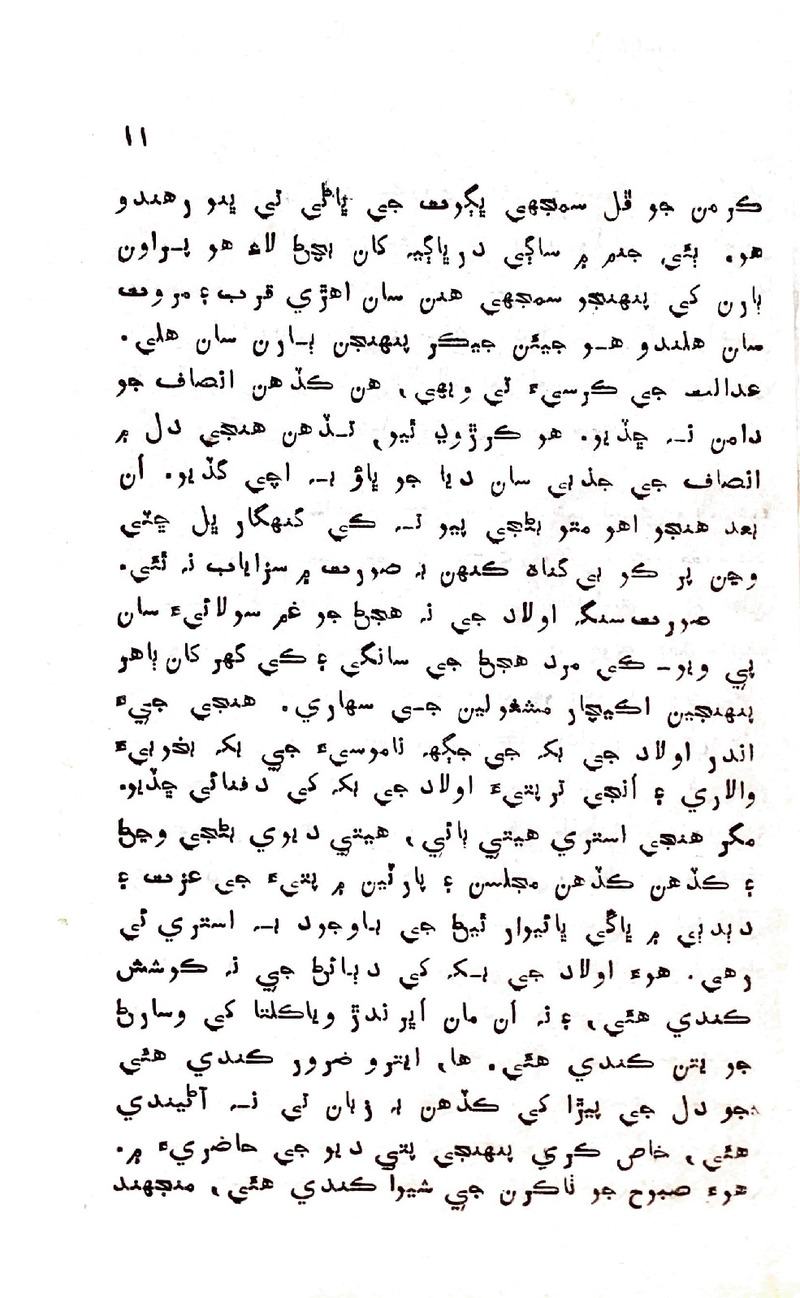 ۱۱
ڪرمن جو ڦل سمجهي ڀڳوت جي ڀاڻي تي ڀنو رهندو
هو. ٻئي جنم ۾ ساڳي درڀاڳيہ کان بچڻ لاءِ هو پراون
ٻارن کي پنهنجو سمجهي هنن سان اهڙي قرب ۽ مروت
سان هلندو هو جيئن جيڪر پنهنجن ٻارن سان هلي.
عدالت جي ڪرسيءَ تي ويهي، هن ڪڏهن انصاف جو
دامن نہ ڇڏيو. هو ڪرڙوڍ ٿيو، تڏهن هنجي دل ۾
انصاف جي جذبي سان ديا جو ڀاؤ بہ اچي گڏيو. اُن
بعد هنجو اهو متو بڻجي پيو تہ کي گنهگار ڀل ڇٽي
وڃن پر ڪو بي گناه ڪنهن بہ صورت ۾ سزاياب نہ ٿئي.
صورت سنگہ اولاد جي نہ هجڻ جو غم سولائيءَ سان
پي ويو – ڪي مرد هجڻ جي سانگي ۽ ڪي گهر کان ٻاهر
پنهنجين اڪيچار مشغولين جي سهاري. هنجي جيءَ
اندر اولاد جي بک جي جڳهہ ناموسيءَ جي بک بخوبيءَ
والاري ۽ اُنجي ترپتيءَ اولاد جي بک کي دفنائي ڇڏيو.
مگر هنجي استري هيتي ٻائي، هيتي ديوي بڻجي وڃڻ
۽ ڪڏهن ڪڏهن مجلسن ۽ پارٽين ۾ پتيءَ جي عزت ۽
دٻدٻي ۾ ڀاڱي ڀائيوار ٿيڻ جي باوجود بہ استري ئي
رهي. هوءَ اولاد جي بک کي دٻائڻ جي نہ ڪوشش
ڪندي هئي، ۽ نہ اُن مان اُڀرندڙ وياڪلتا کي وسارڻ
جو يتن ڪندي هئي. ها، ايترو ضرور ڪندي هئي
جو دل جي پيڙا کي ڪڏهن بہ زبان تي نہ آڻيندي
هئي، خاص ڪري پنهنجي پتي ديو جي حاضريءَ ۾.
هوءَ صبوح جو ٺاڪرن جي شيوا ڪندي هئي، منجهند